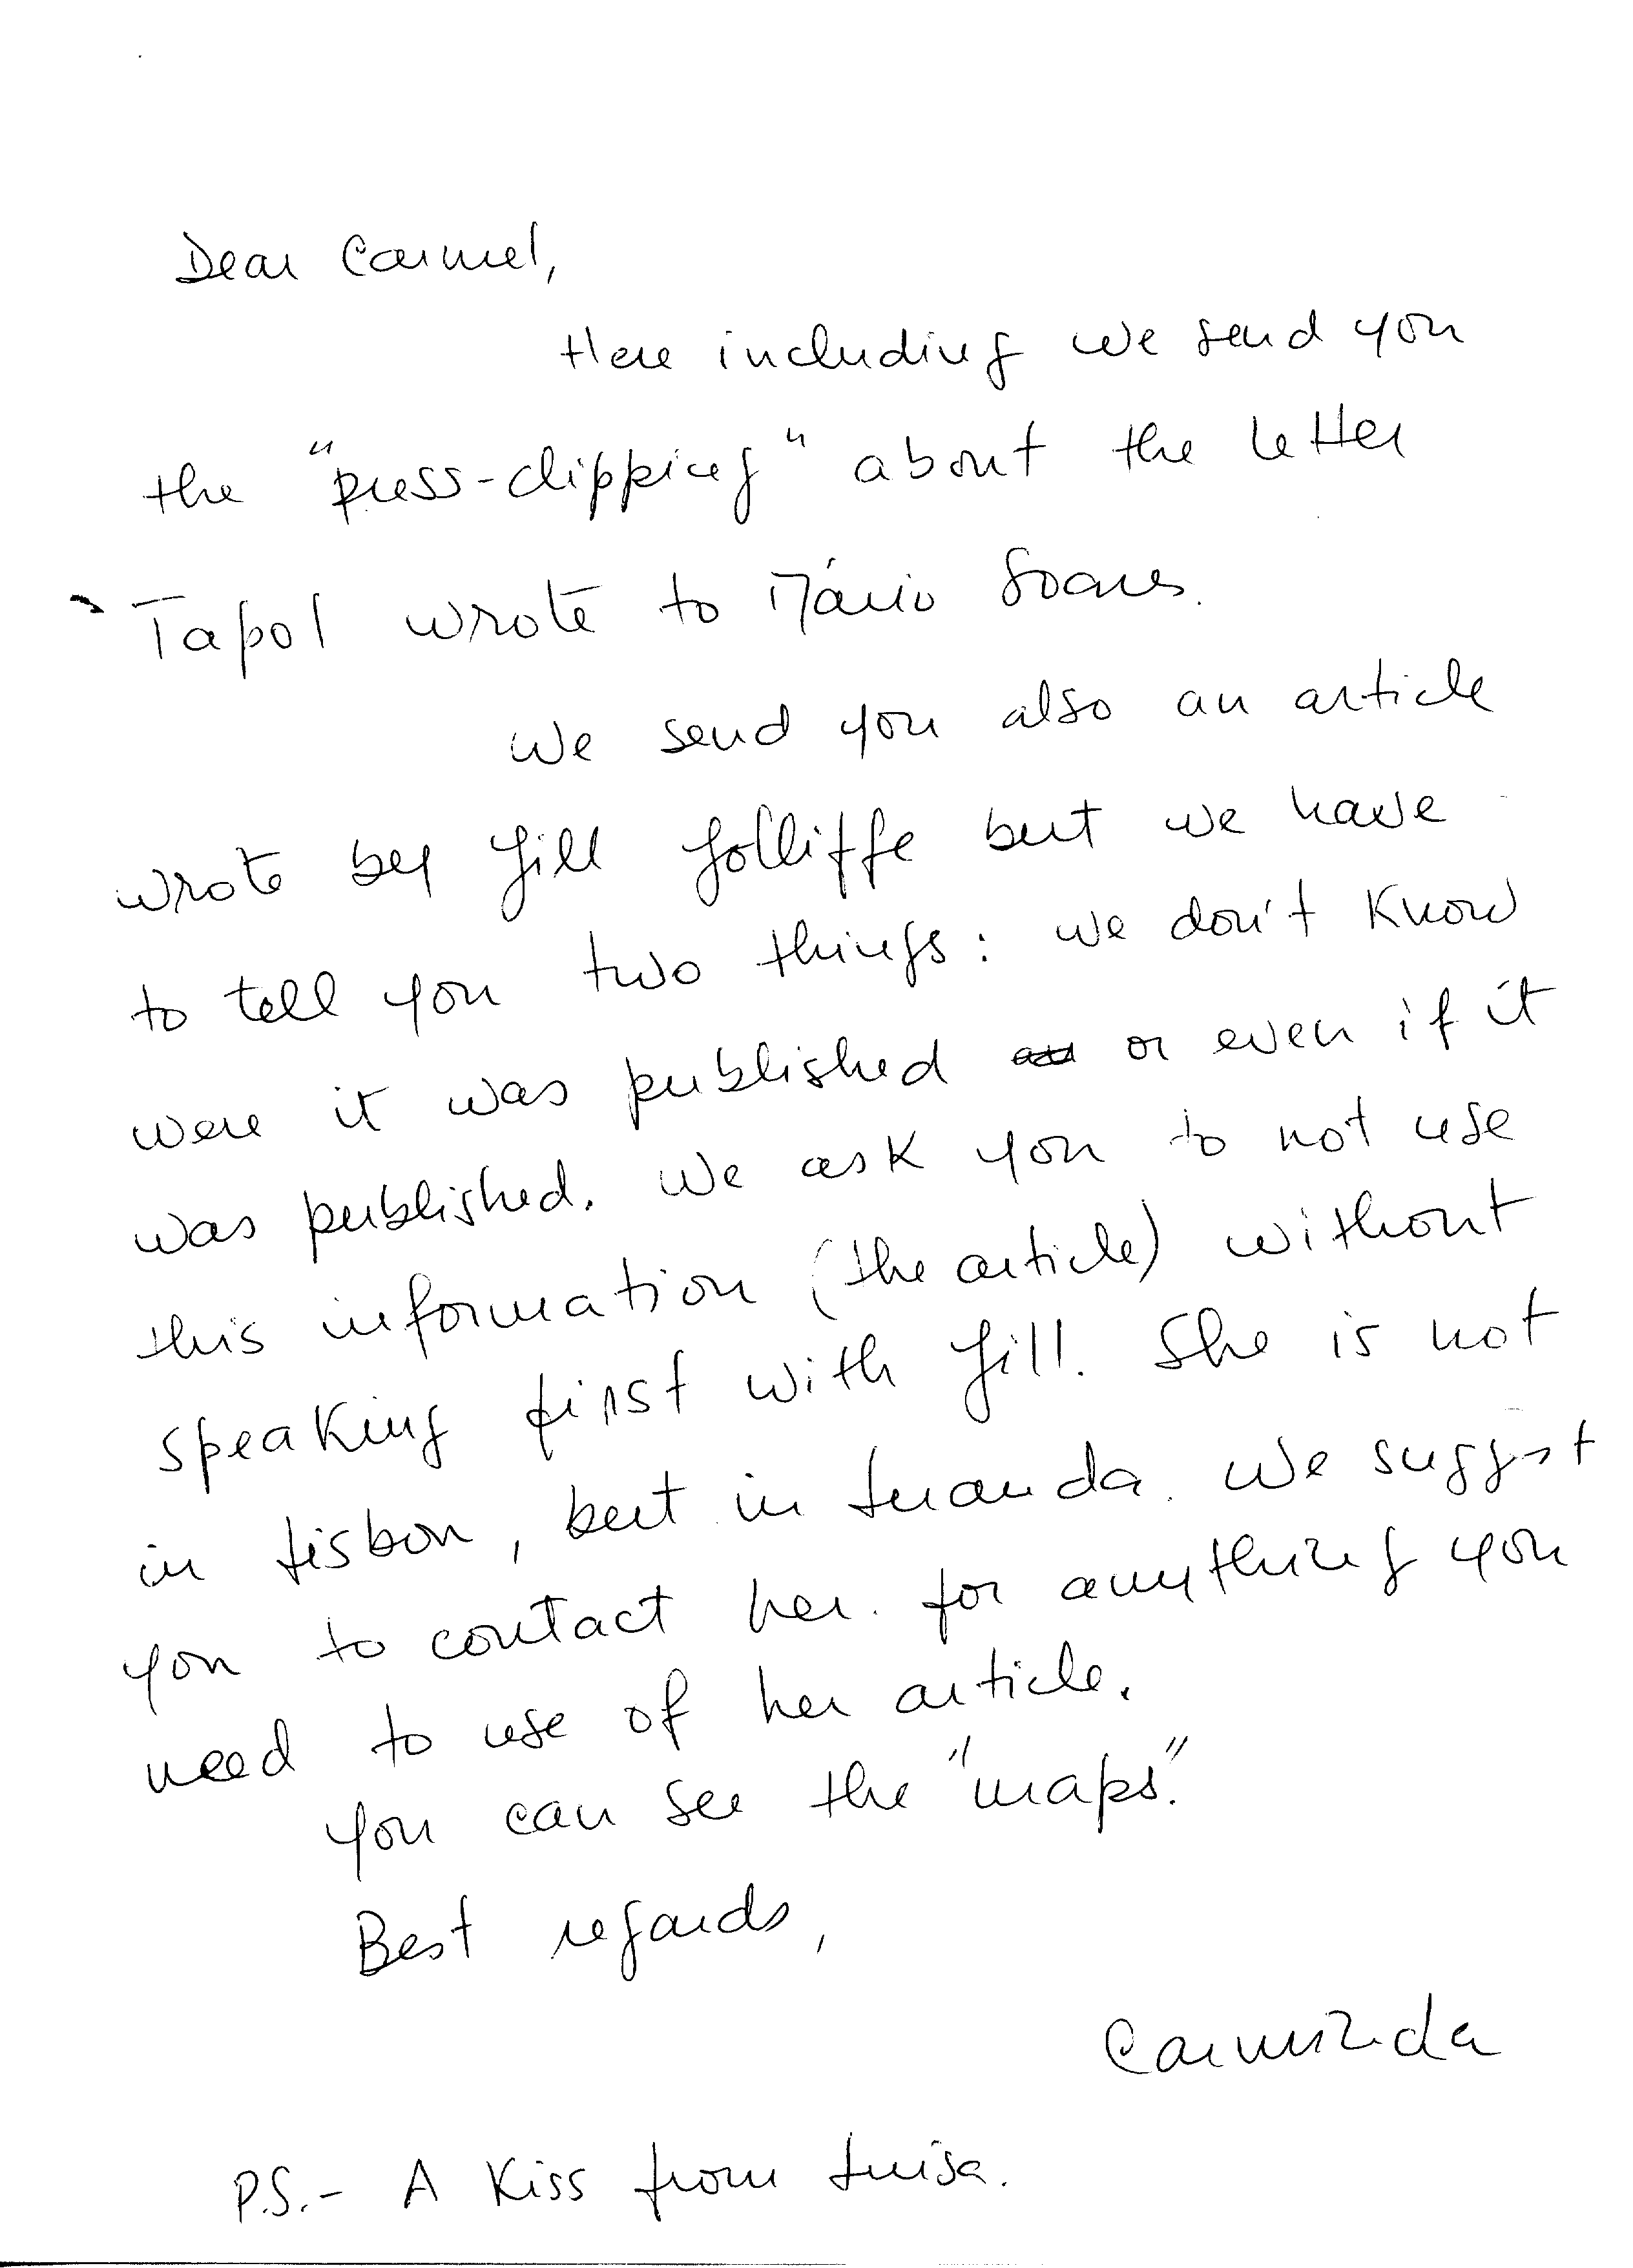 Dear Carmel,
Here including we send you
the "press-clipping" about the letter
Tapol wrote to Mário Soares.
We send you also an article
wrote by Jill Jolliffe but we have
to tell you two things: we don't know
were it was published or even if it
was published. We ask you to not use
this information (the article) without
speaking first with Jill. She is not
in Lisbon, but in Luanda. We suggest
you to contact her for anything you
need to use of her article.
You can see the "maps".
Best regards,
Carmizda
P.S.- A Kiss from Luisa.